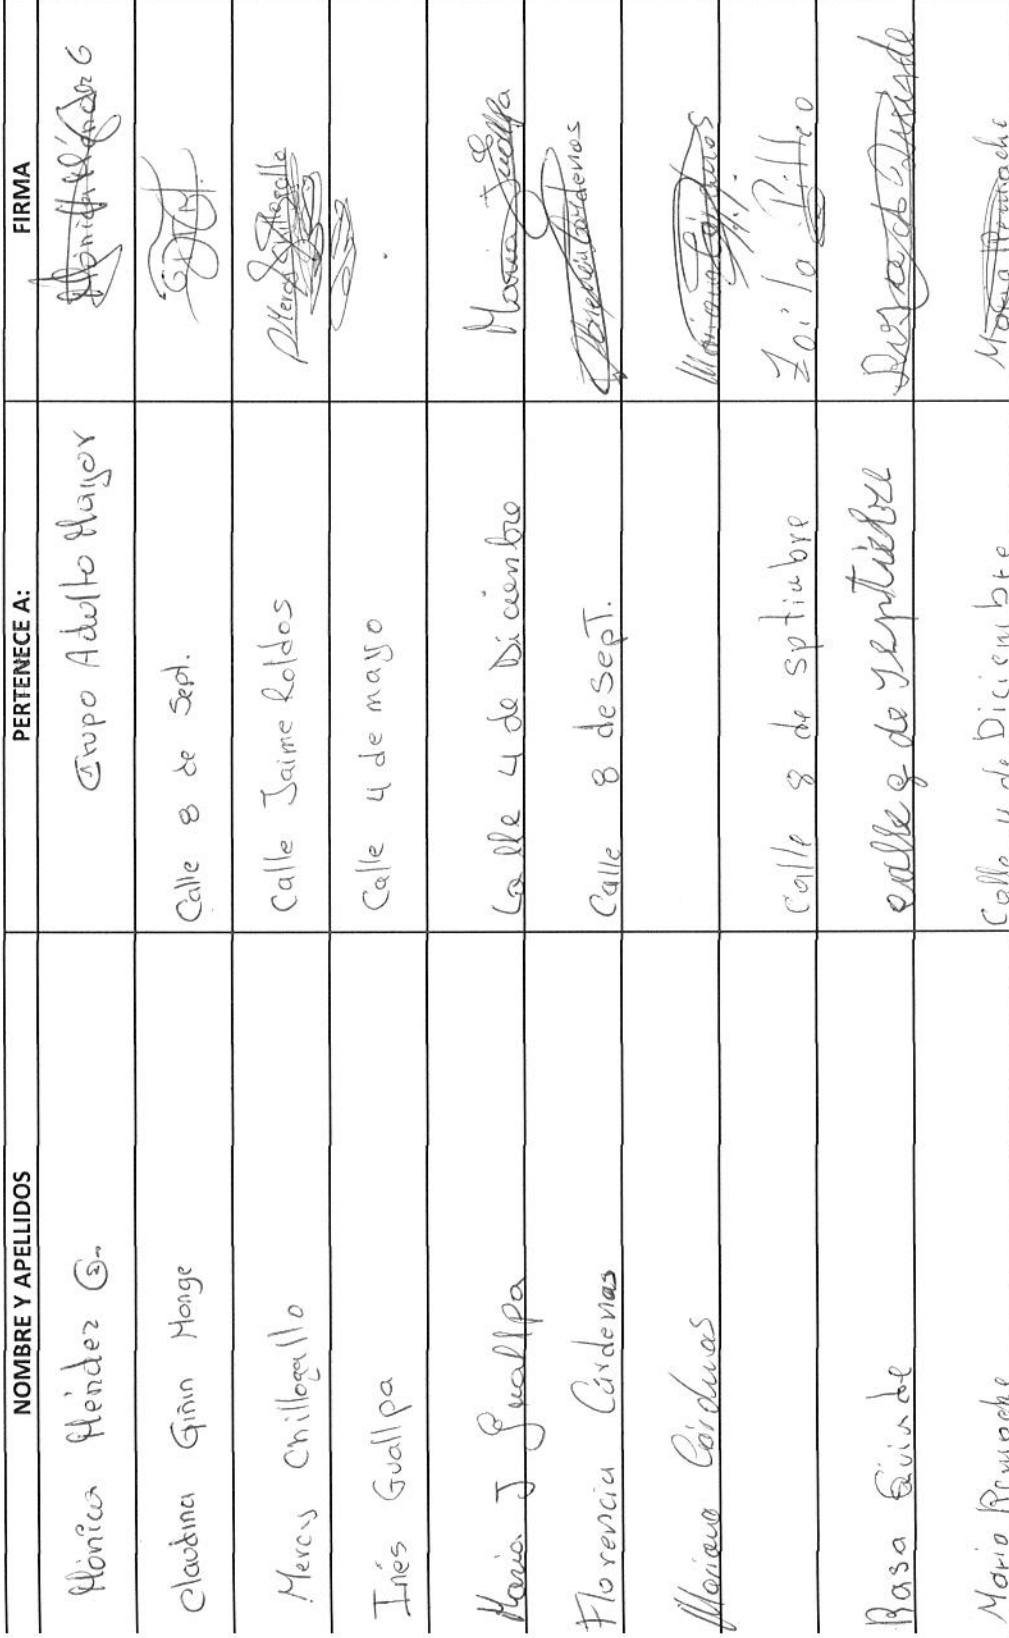 NOMBRE Y APELLIDOS PERTENECE A: FIRMA
Mónica Méndez G. Grupo Adulto Mayor Mónica Méndez G
Claudina Ginin Monge Calle 8 de Sept.
Mercy Chillogallo Calle Jaime Roldos Mercy Chillogallo
Inés Guallpa Calle 4 de mayo
Maria J Guallpa Calle 4 de Diciembre Maria Guallpa
Florencia Cárdenas Calle 8 de Sept. Florencia Cardenas
Mariana Cárdenas Mariana Cárdenas
Calle 8 de Sptiubre Zoila
Rosa Quinde calle 8 de Septiebre Rosa Quinde
Calle 4 de Diciembre